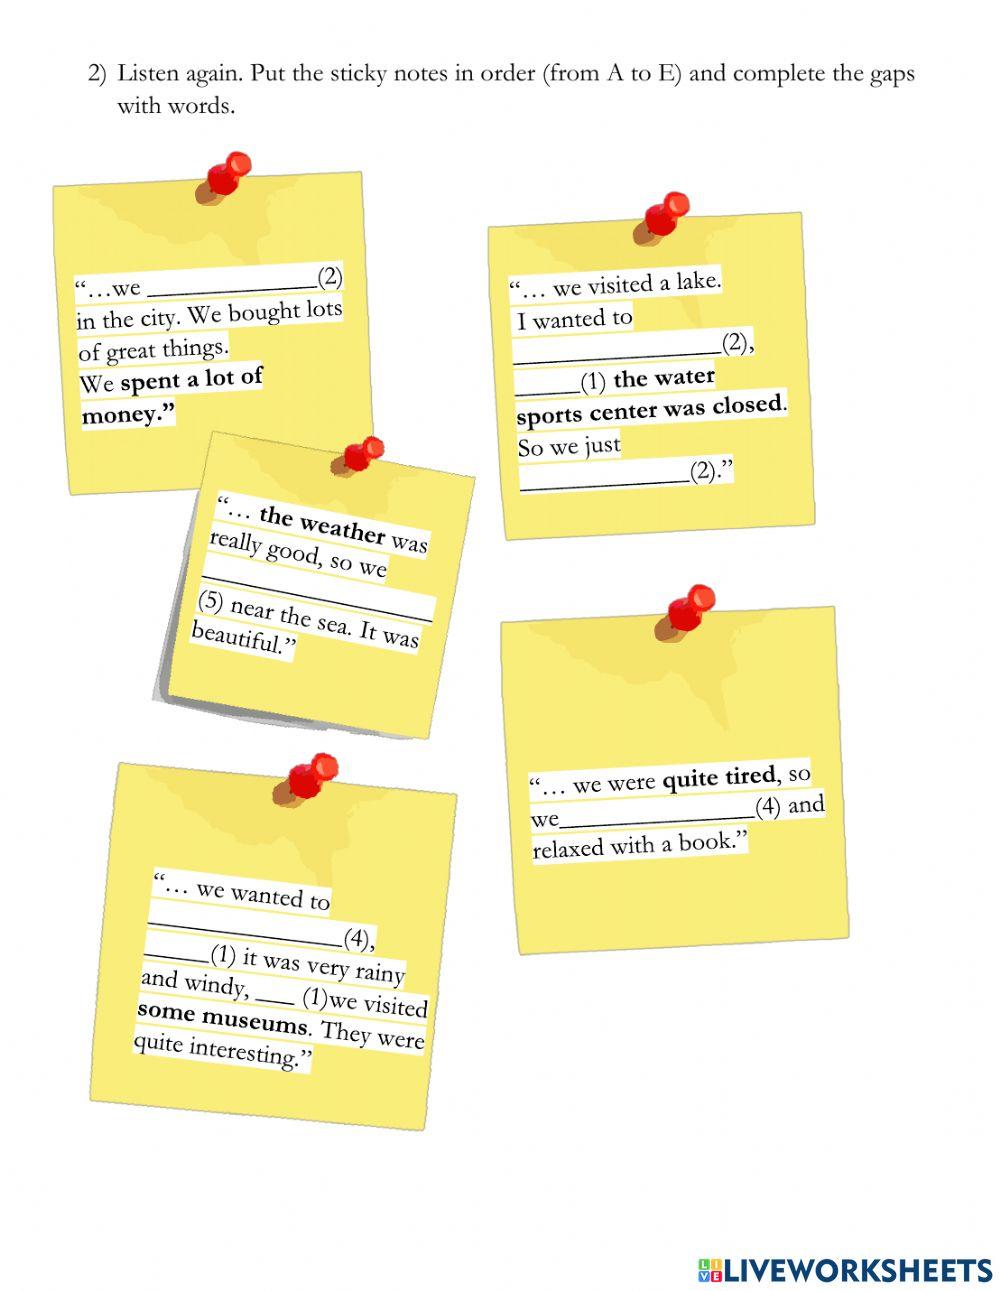 2) Listen again. Put the sticky notes in order (from A to E) and complete the gaps
with words.
“…we ______________(2)
in the city. We bought lots
of great things.
We spent a lot of
money.”
“… we visited a lake.
I wanted to
_________________(2),
_____(1) the water
sports center was closed.
So we just
______________(2).”
“… the weather was
really good, so we
___________________
(5) near the sea. It was
beautiful.”
“… we were quite tired, so
we________________(4) and
relaxed with a book.”
“… we wanted to
________________(4),
_____(1) it was very rainy
and windy, ___ (1)we visited
some museums. They were
quite interesting.”
LIVE LIVEWORKSHEETS